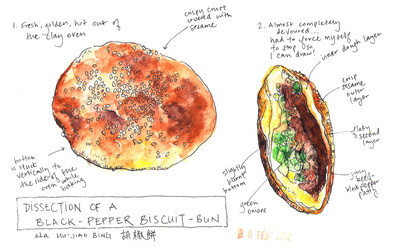 1. Fresh, golden, hot out of
the clay oven
crispy crust
covered with
sesame
bottom
is stuck
vertically to
the side of the
oven while
baking
DISSECTION OF A
BLACK-PEPPER BISCUIT-BUN
aka HU-JIAO BING 胡椒餅
2. Almost completely
devoured...
had to force myself
to stop so
I can draw!
inner dough layer
crisp
sesame
outer
layer
flaky
second
layer
juicy
beef-
black pepper
patty
slightly
burnt
bottom
green
onions
FEB 2012